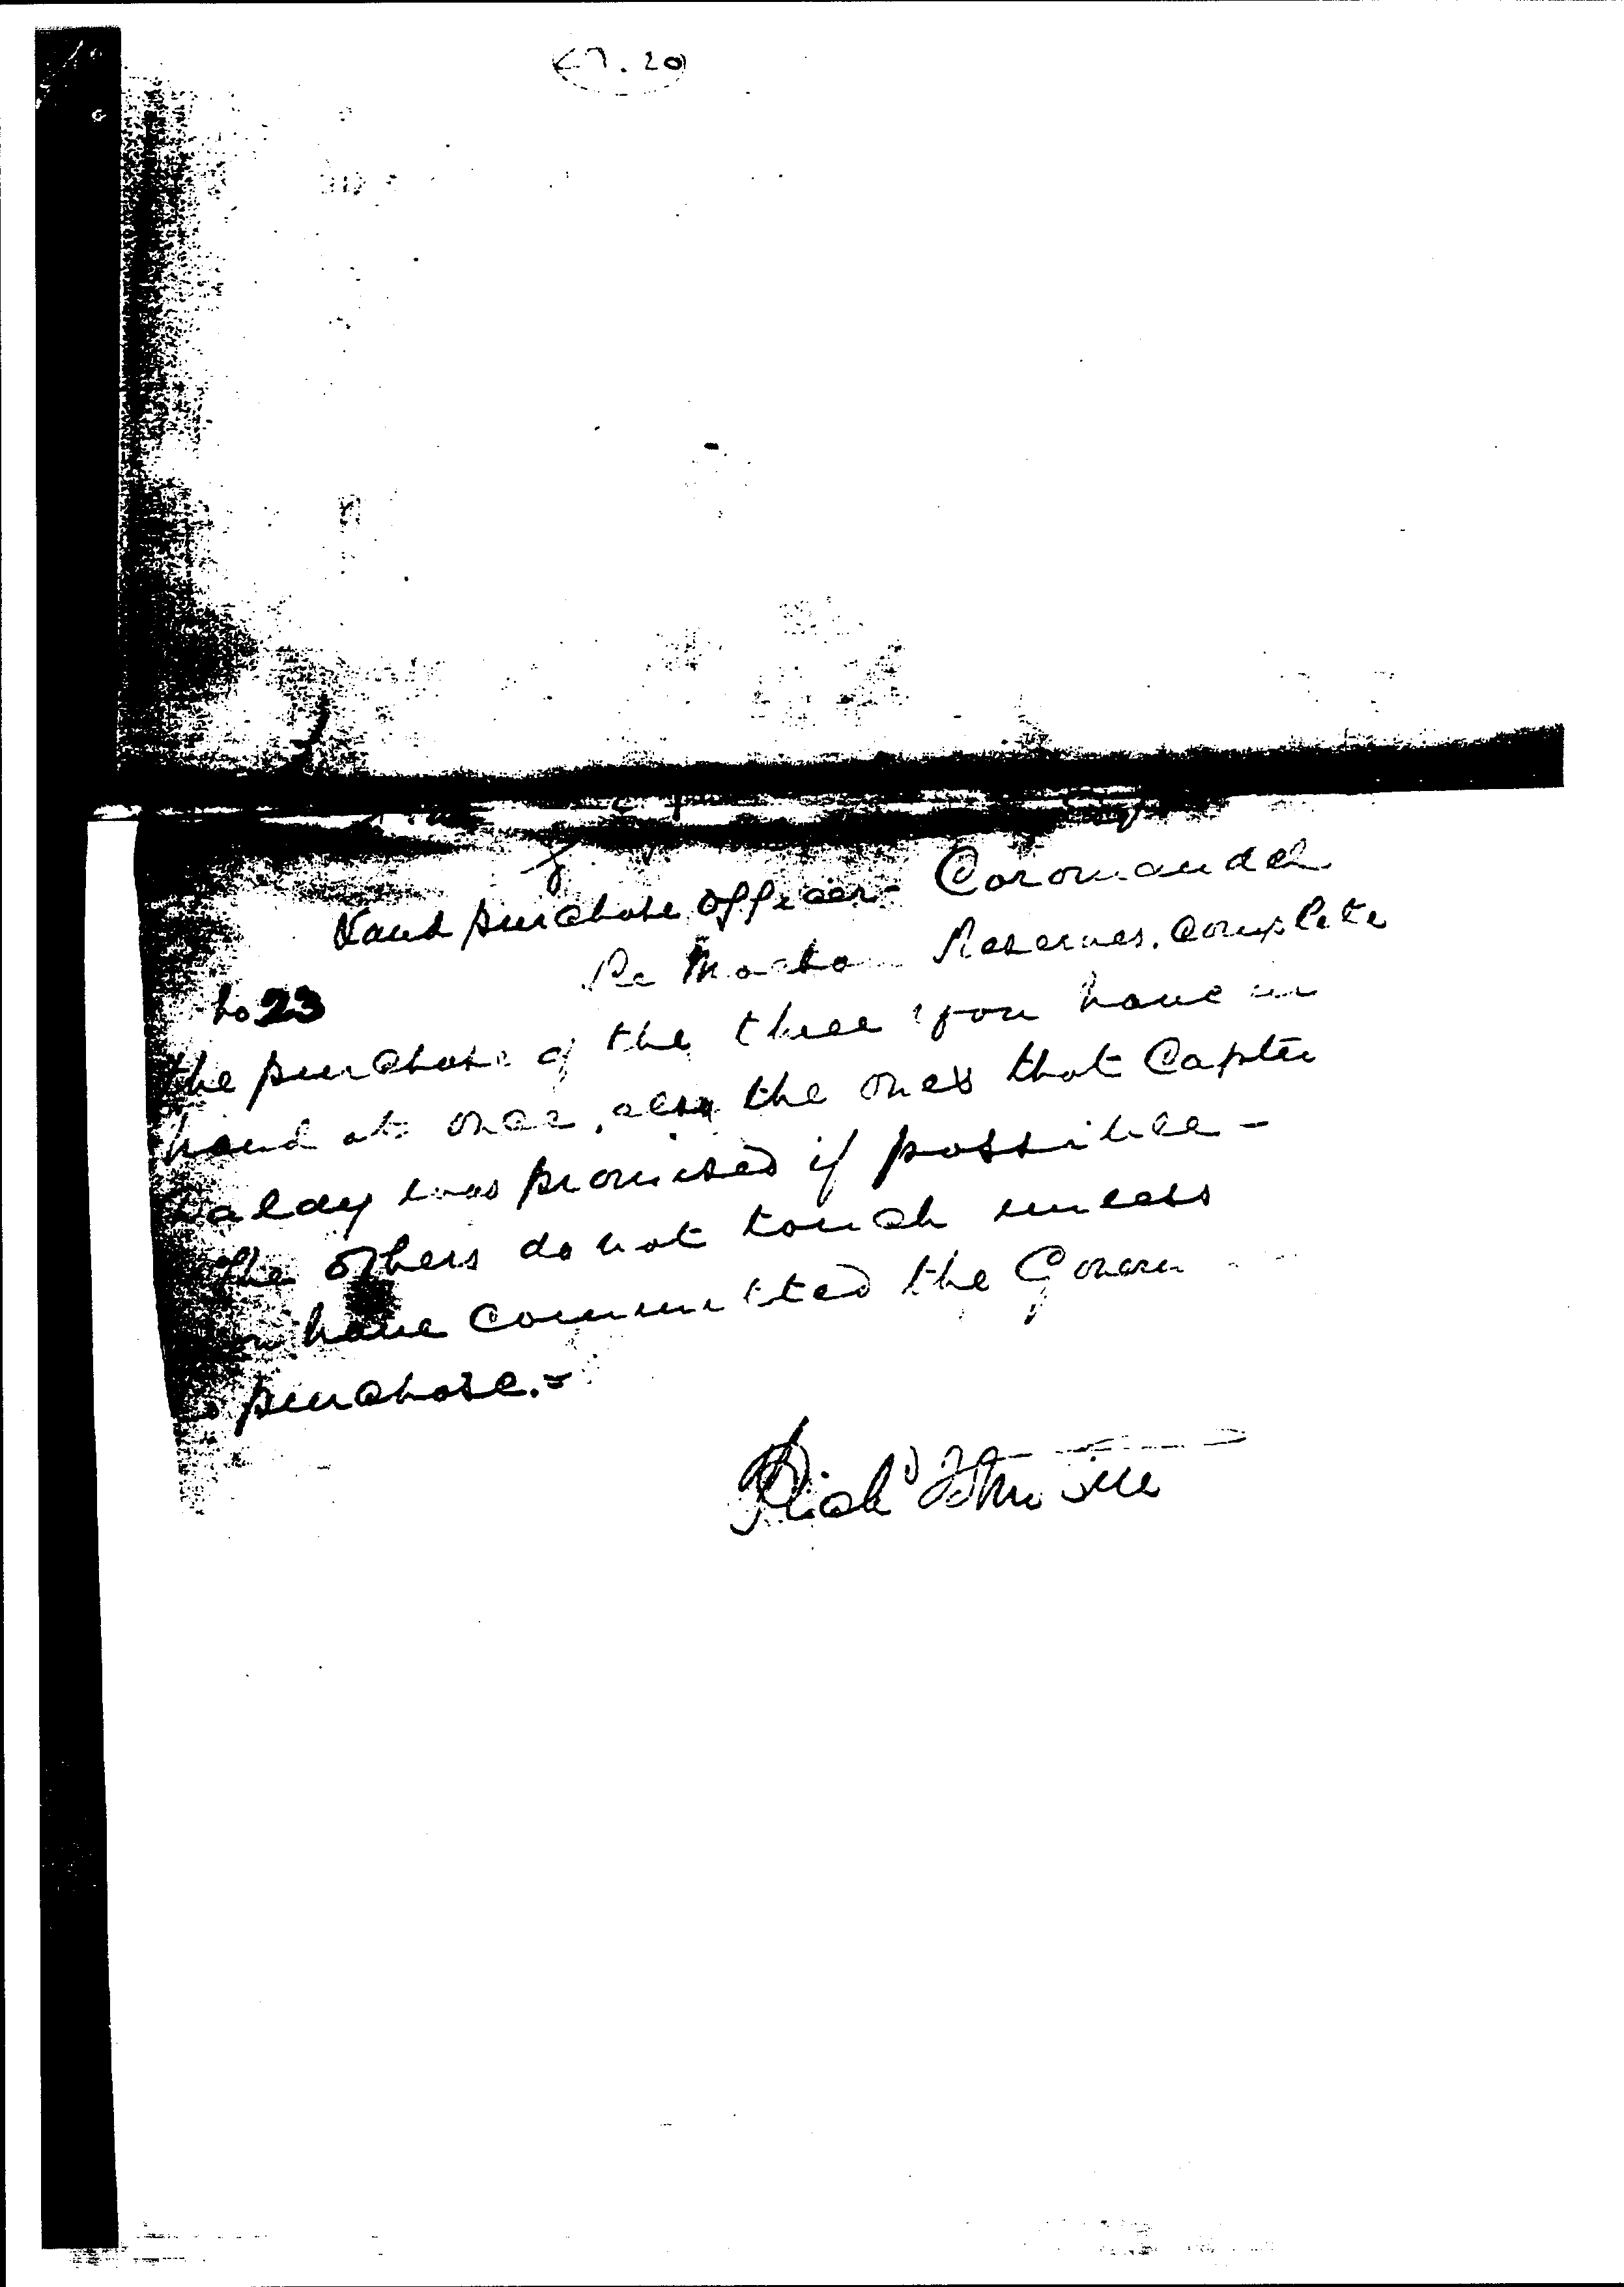 Land purchase officer - Coromandel
Re Reserves. Complete
No 23
the purchase of the three you have in
hand at once, also the ones that Captn
was promised if possible -
The others do not touch unless
have committed the Govern
to purchase. -
Richd